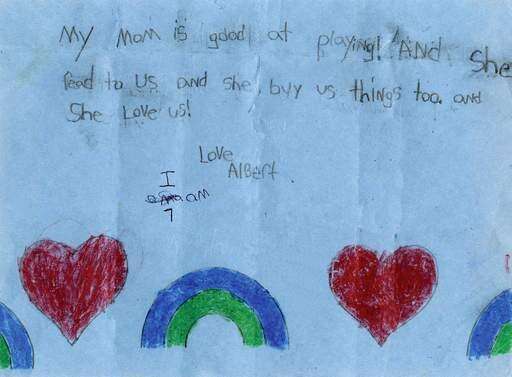 My Mom is good at playing! And She
read to Us and she buy us things too. and
She Love us!
Love
Albert
I
am
7